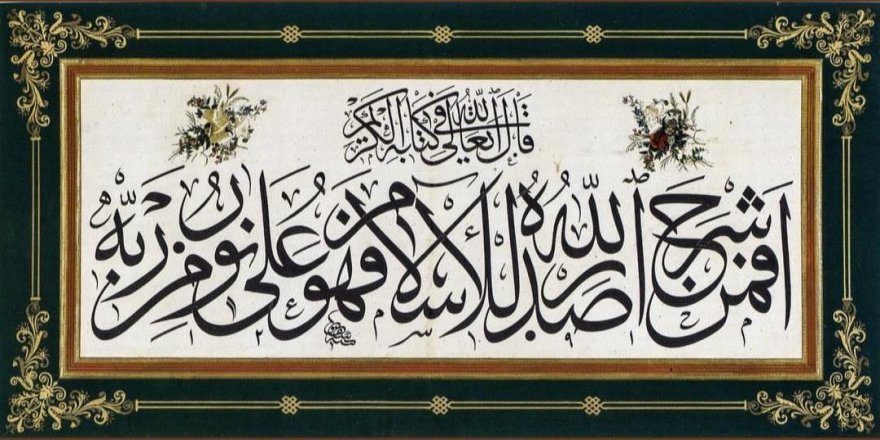 قال الله تعالى في كتابه الكريم
افمن شرح الله صدره للإسلام فهو على نور من ربه